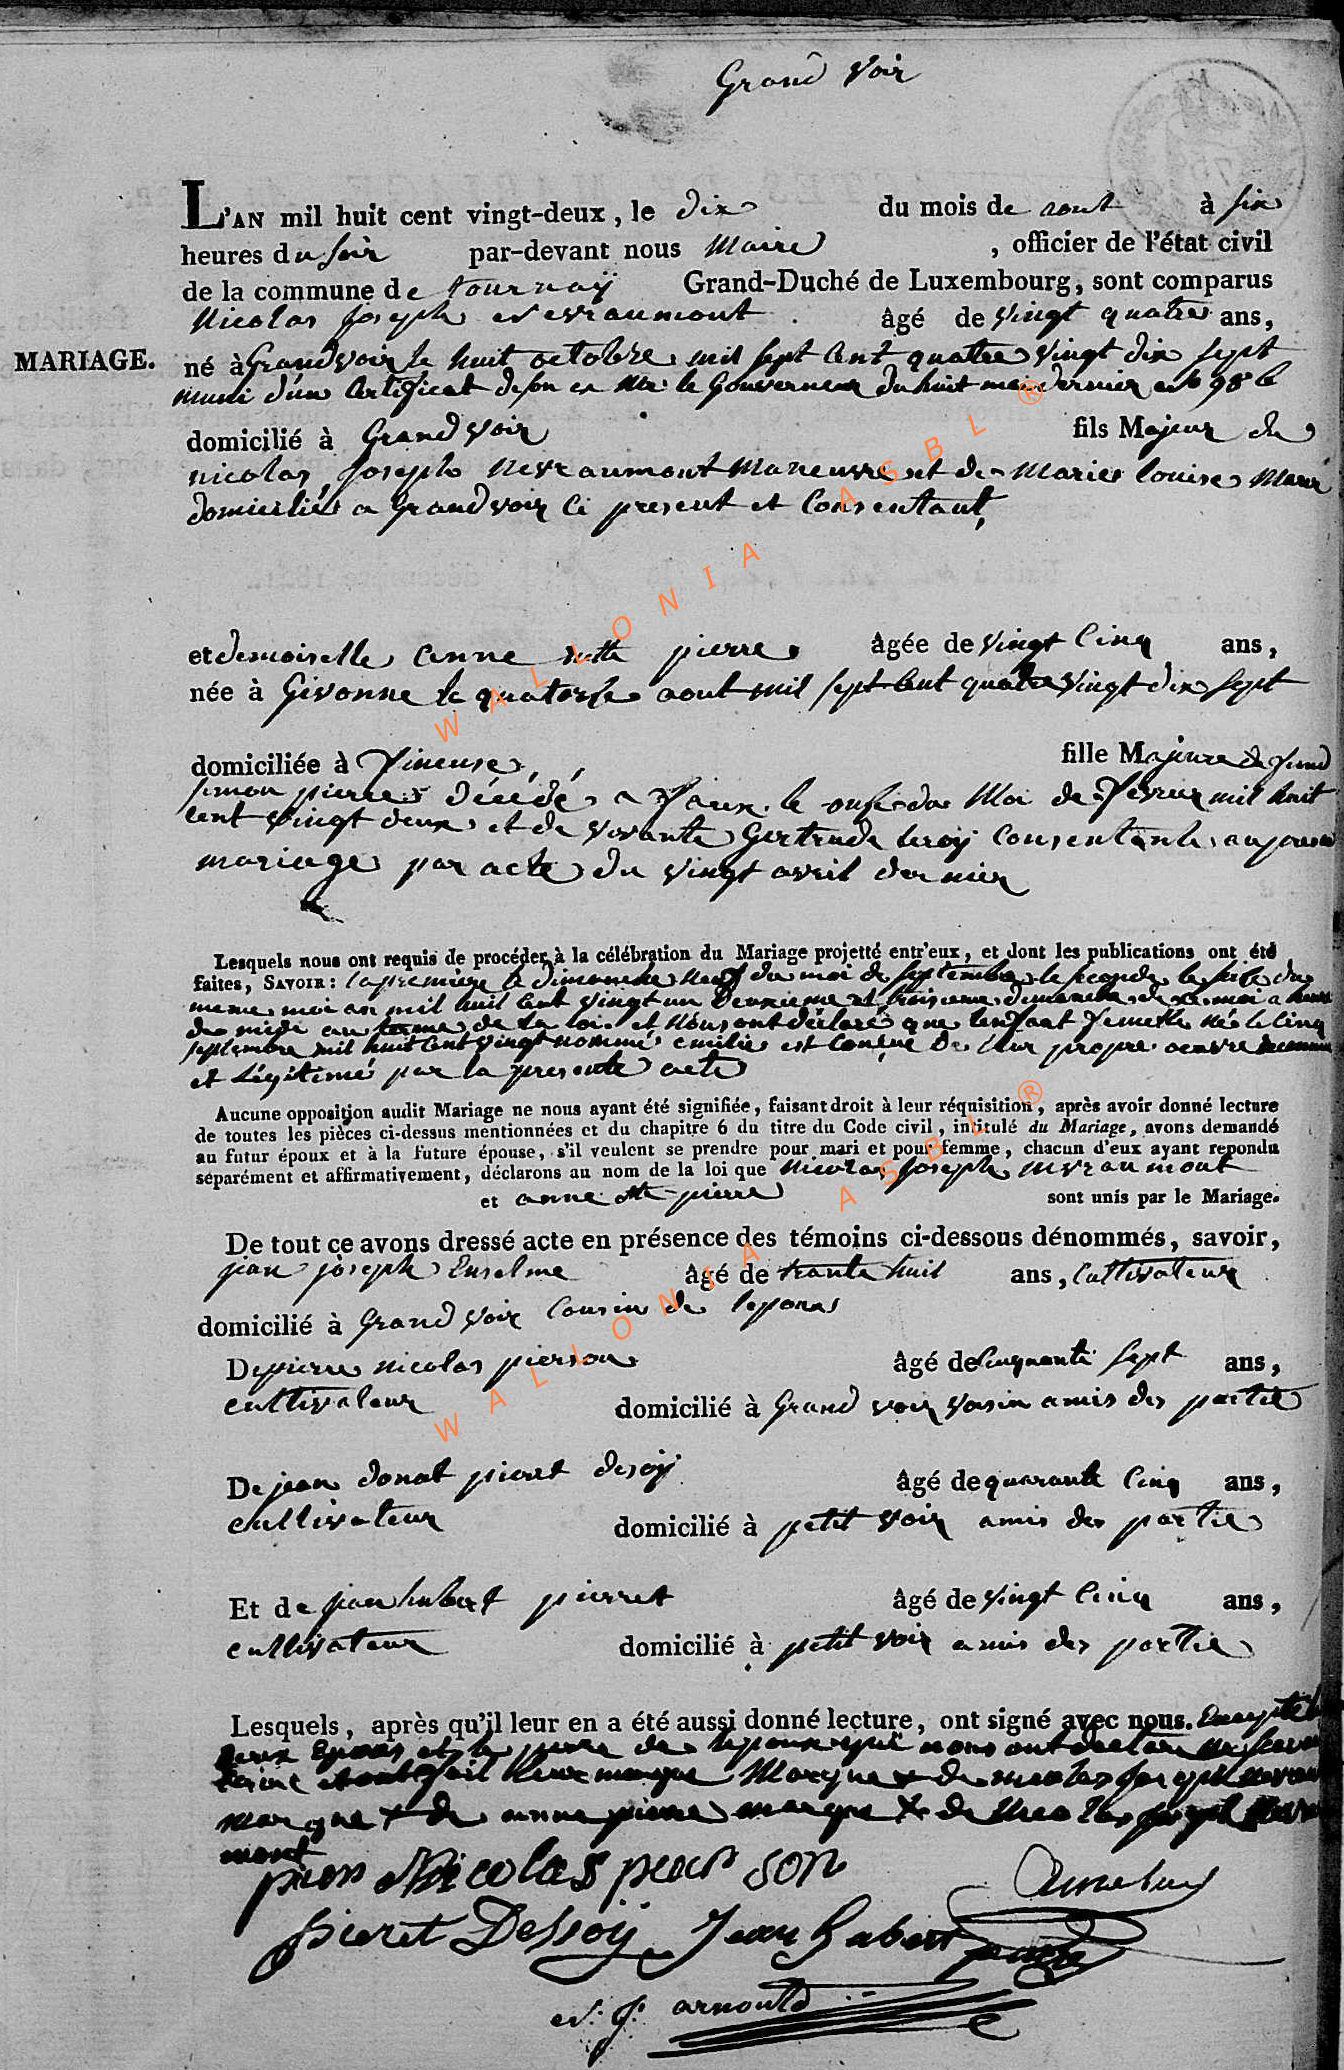 Grand Voir
L'AN mil huit cent vingt-deux, le dix du mois de aout à six
heures du soir par-devant nous Maire , officier de l'état civil
de la commune de tournay Grand-Duché de Luxembourg, sont comparus
Nicolas Joseph Nevraumont âgé de vingt quatre ans,
MARIAGE.
né à Grandvoir le huit octobre mil sept cent quatre vingt dix sept
muni d'un Certificat de son ex Mr le Gouverneur du huit mai dernier
domicilié à Grand voir fils Majeur de
nicolas Joseph Nevraumont Maneuvre et de Marie louise
domicilié a Grandvoir ci present et Consentant,
et demoiselle anne pierre âgée de vingt Cinq ans,
née à Givonne le quatorse aout mil sept cent quatre vingt dix sept
domiciliée à Vineuse, fille Majeure de
simon pierre décédé a Vaux le onse du Moi de Fevrier mil huit
cent vingt deux et de vivante Gertrude leroy Consentante au
mariage par acte du vingt avril dernier
Lesquels nous ont requis de procéder à la célébration du Mariage projetté entr'eux, et dont les publications ont été
faites, SAVOIR : la premiere le dimanche neuf du moi de septembre le seconde le seise du
meme moi an mil huit cent vingt un Deuxieme et troisieme dimanche de ce moi a
de midi au de la loi et Nous ont déclaré que l'enfant femelle né le Cinq
septembre mil huit cent vingt nommé emilie est Conçue De leur propre oeuvre
et Légitimé par la presente acte
Aucune opposition audit Mariage ne nous ayant été signifiée, faisant droit à leur réquisition, après avoir donné lecture
de toutes les pièces ci-dessus mentionnées et du chapitre 6 du titre du Code civil, intitulé du Mariage, avons demandé
au futur époux et à la future épouse, s'il veulent se prendre pour mari et pour femme, chacun d'eux ayant repondu
séparément et affirmativement, déclarons au nom de la loi que Nicolas Joseph nevraumont
et anne pierre sont unis par le Mariage.
De tout ce avons dressé acte en présence des témoins ci-dessous dénommés, savoir,
jean joseph Enselme âgé de trante huit ans, Cultivateur
domicilié à Grand Voir Cousin de l'epoux
De pierre nicolas pierson âgé de Cinquante sept ans,
cultivateur domicilié à Grand voir voisin amis des partie
De jean donat pieret desoy âgé de quarante Cinq ans,
cultivateur domicilié à petit Voir amis des partie
Et de jean hubert pierret âgé de vingt Cinq ans,
cultivateur domicilié à petit voir amis des partie
Lesquels, après qu'il leur en a été aussi donné lecture, ont signé avec nous. Excepté
deux Epoux et le pere de l'epoux qui nous ont declaré ne
ecrire et ont fait leur marque Marque + de nicolas joseph
marque + de anne pierre marque + de Nicolas joseph
mont
Nicolas pier son
pieret Dessoy Jean hubert
N. J. arnould
WALLONIA ASBL ®
WALLONIA ASBL ®